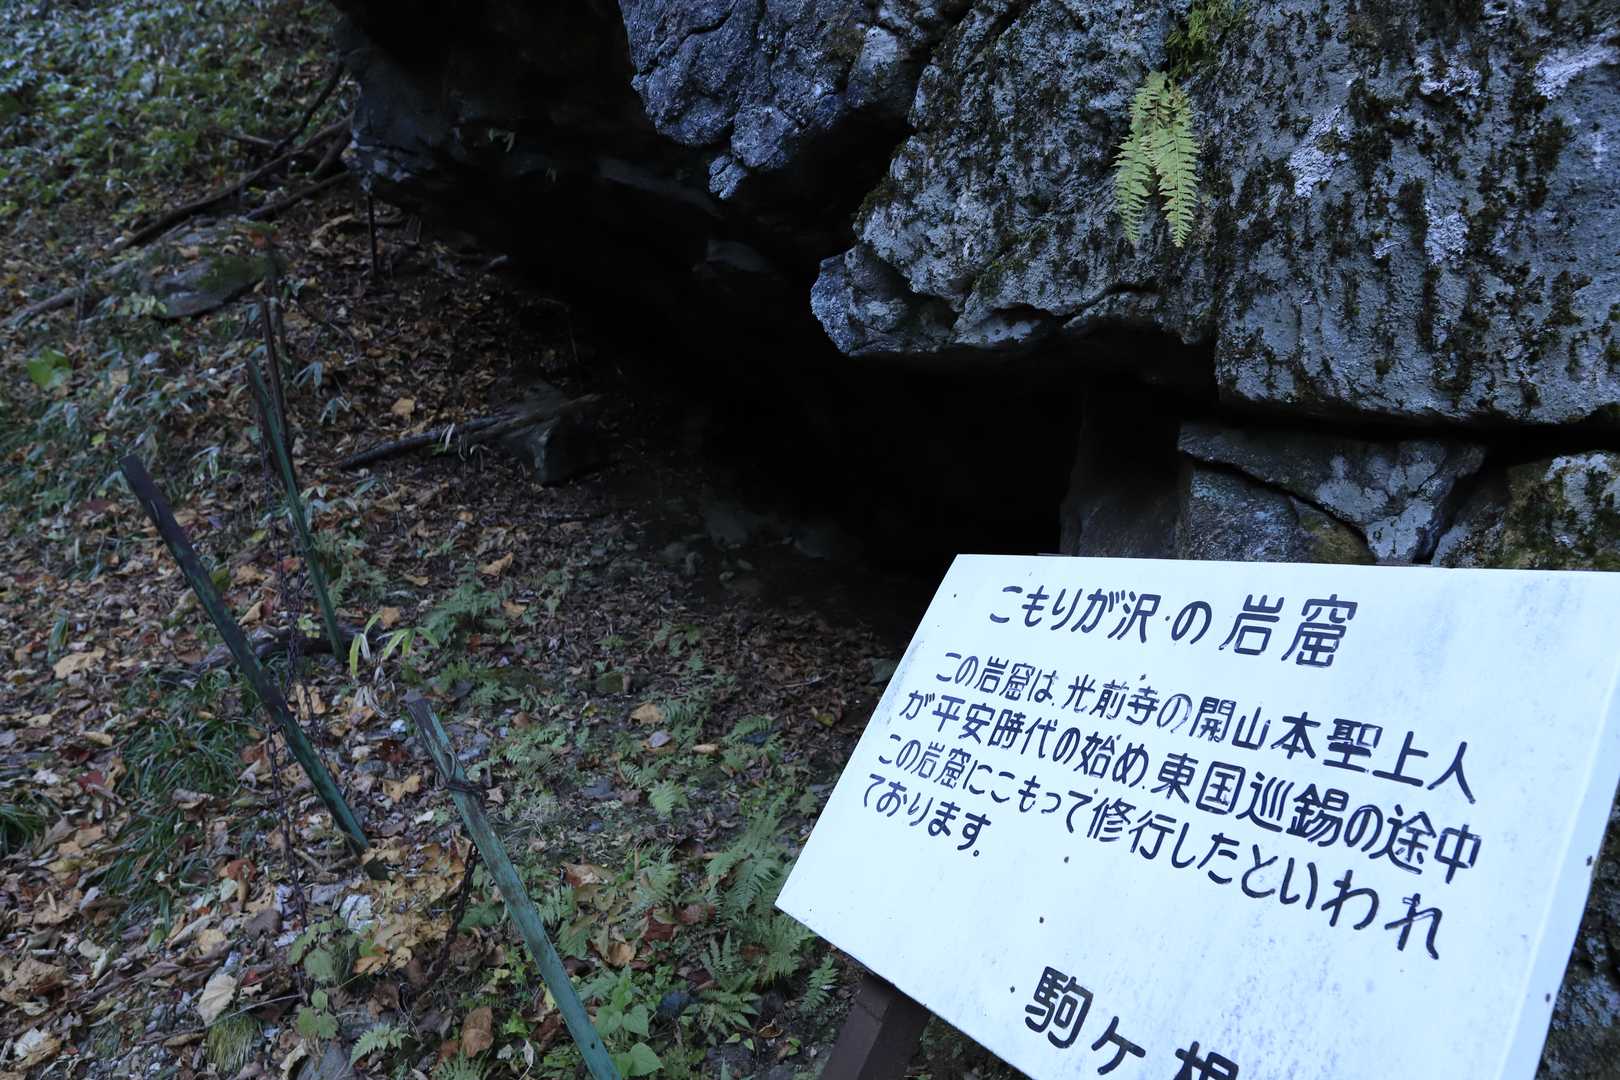 こもりが沢の岩窟
この岩窟は、光前寺の開山本聖上人
が平安時代の始め、東国巡錫の途中
この岩窟にこもって修行したといわれ
ております。
駒ヶ根